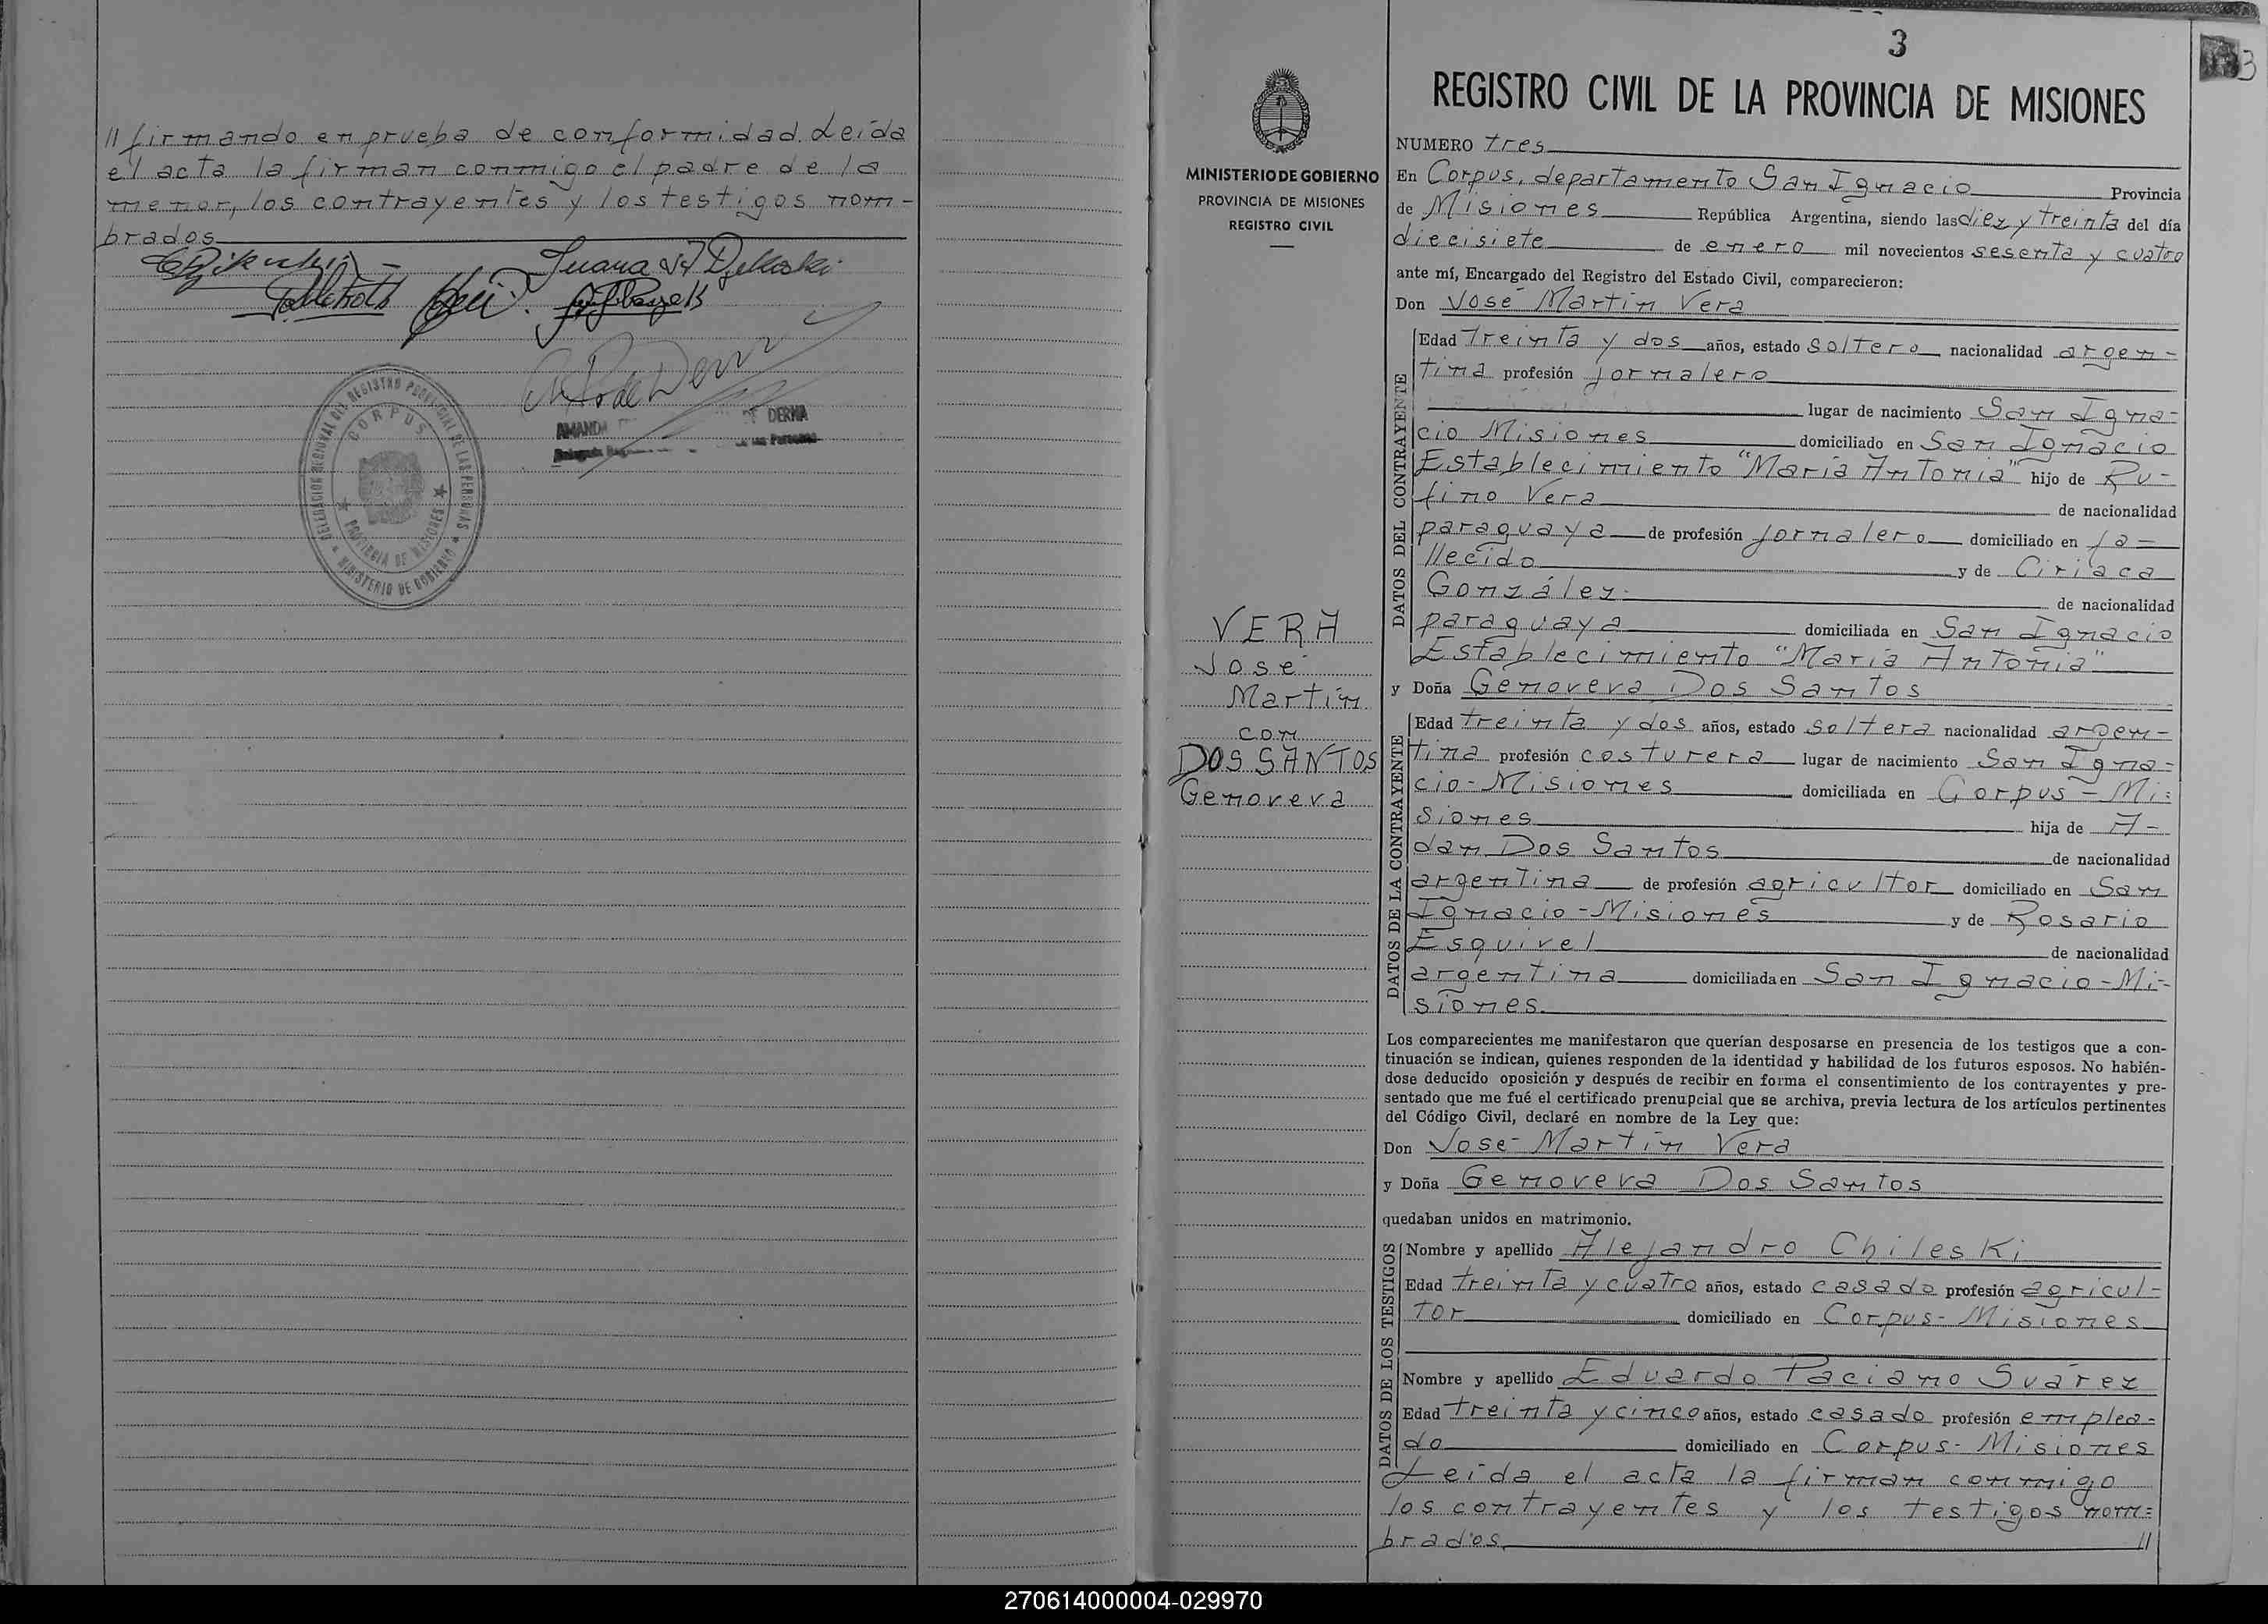 // firmando en prueba de conformidad. Leída
el acta la firman conmigo el padre de la
menor, los contrayentes y los testigos nom-
brados
AMANDA DE DERNA
DELEGACION REGIONAL DEL REGISTRO PROVINCIAL DE LAS PERSONAS
CORPUS
PROVINCIA DE MISIONES
MINISTERIO DE GOBIERNO
MINISTERIO DE GOBIERNO
PROVINCIA DE MISIONES
REGISTRO CIVIL
VERA
José
Martín
con
DOS SANTOS
Genoveva
3
3
REGISTRO CIVIL DE LA PROVINCIA DE MISIONES
NUMERO tres
En Corpus, departamento San Ignacio Provincia
de Misiones República Argentina, siendo las diez y treinta del día
diecisiete de enero mil novecientos sesenta y cuatro
ante mí, Encargado del Registro del Estado Civil, comparecieron:
Don José Martín Vera
DATOS DEL CONTRAYENTE
Edad treinta y dos años, estado soltero nacionalidad argen-
tina profesión jornalero
lugar de nacimiento San Igna-
cio Misiones domiciliado en San Ignacio
Establecimiento "María Antonia" hijo de Ru-
fino Vera de nacionalidad
paraguaya de profesión jornalero domiciliado en fa-
llecido y de Ciriaca
González de nacionalidad
paraguaya domiciliada en San Ignacio
Establecimiento "María Antonia"
y Doña Genoveva Dos Santos
DATOS DE LA CONTRAYENTE
Edad treinta y dos años, estado soltera nacionalidad argen-
tina profesión costurera lugar de nacimiento San Igna-
cio-Misiones domiciliada en Corpus-Mi-
siones hija de A-
dan Dos Santos de nacionalidad
argentina de profesión agricultor domiciliado en San
Ignacio-Misiones y de Rosario
Esquivel de nacionalidad
argentina domiciliada en San Ignacio-Mi-
siones.
Los comparecientes me manifestaron que querían desposarse en presencia de los testigos que a con-
tinuación se indican, quienes responden de la identidad y habilidad de los futuros esposos. No habién-
dose deducido oposición y después de recibir en forma el consentimiento de los contrayentes y pre-
sentado que me fué el certificado prenupcial que se archiva, previa lectura de los artículos pertinentes
del Código Civil, declaré en nombre de la Ley que:
Don José Martín Vera
y Doña Genoveva Dos Santos
quedaban unidos en matrimonio.
DATOS DE LOS TESTIGOS
Nombre y apellido Alejandro Chileski
Edad treinta y cuatro años, estado casado profesión agricul-
tor domiciliado en Corpus-Misiones
Nombre y apellido Eduardo Paciano Suárez
Edad treinta y cinco años, estado casado profesión emplea-
do domiciliado en Corpus-Misiones
Leída el acta la firman conmigo
los contrayentes y los testigos nom-
brados. //
270614000004-029970